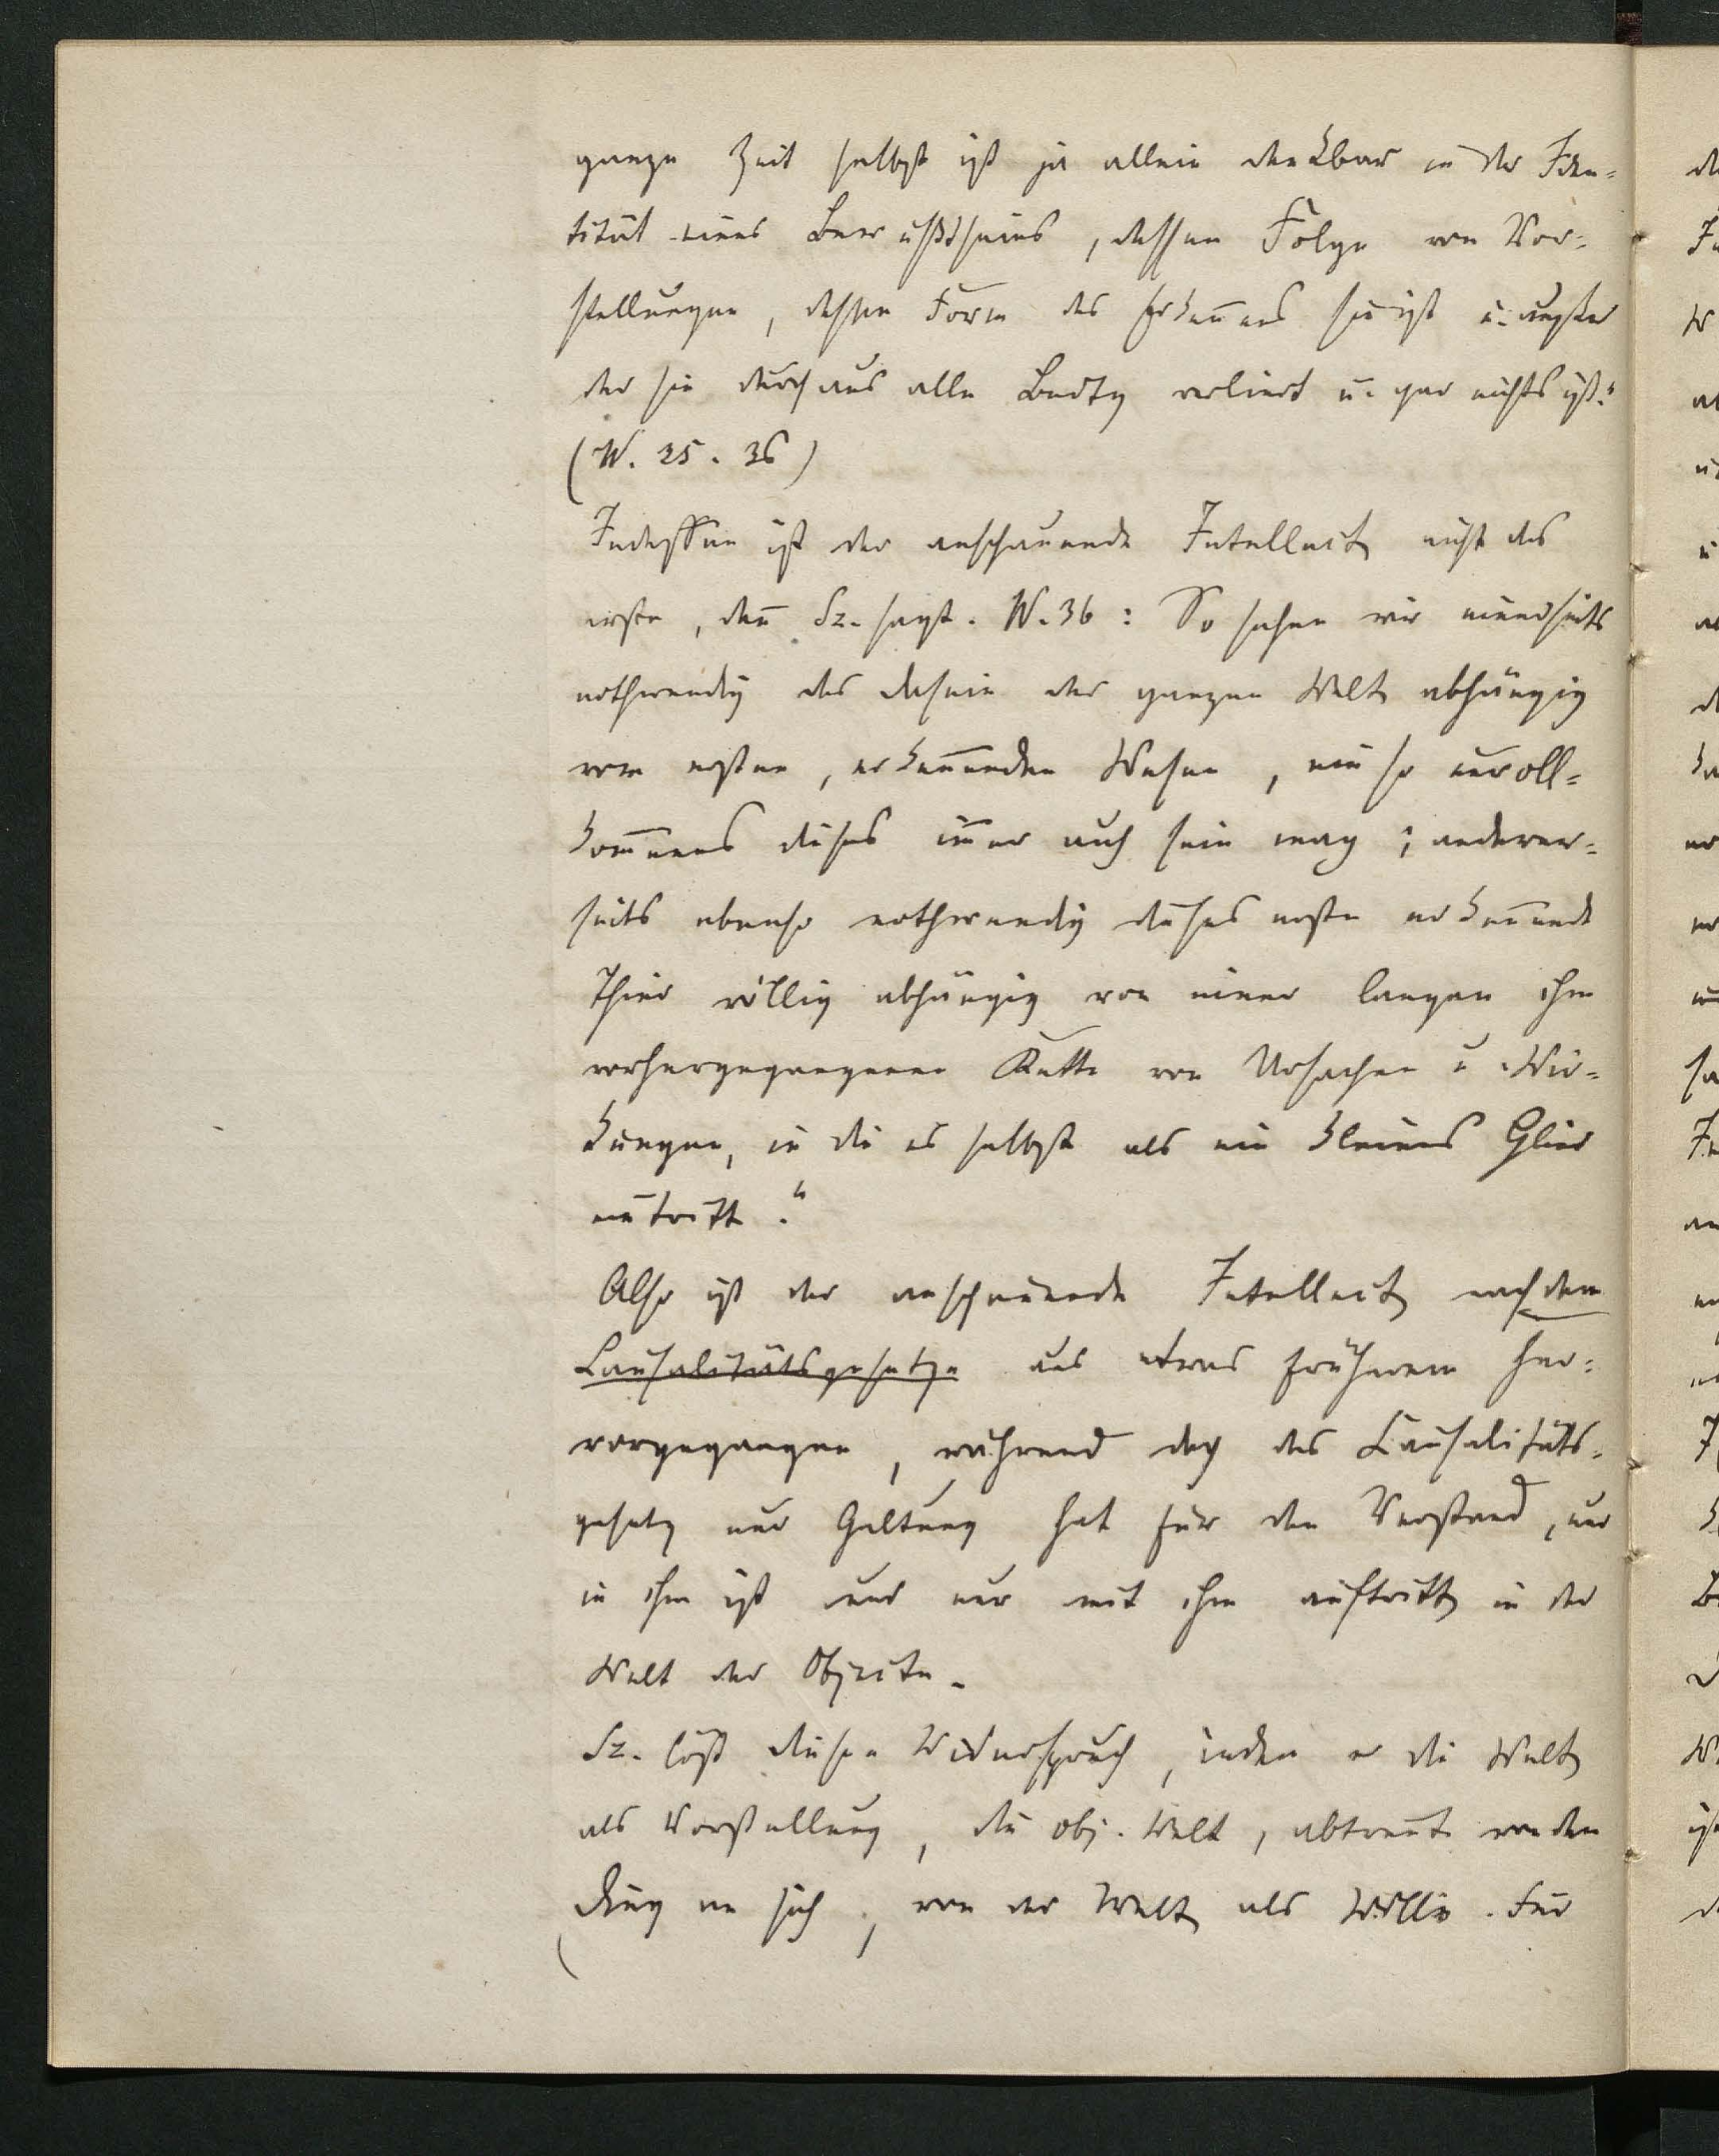 ganze Zeit selbst ist ja allein denkbar in der Iden-
tität eines Bewußtseins, dessen Folge von Vor-
stellungen, dessen Form des Erkennens sie ist u. außer
der sie durchaus alle Bedtg verliert u. gar nichts ist."
(W. 35. 36)
Indessen ist der anschauende Intellect nicht das
erste, denn Sz. sagt. W. 36: So sehen wir einerseits
nothwendig das Dasein der ganzen Welt abhängig
vom ersten, erkennenden Wesen, ein so unvoll-
kommenes dieses immer auch sein mag; anderer-
seits ebenso nothwendig dieses erste erkennende
Thier völlig abhängig von einer langen ihm
vorhergegangenen Kette von Ursachen u. Wir-
kungen, in die es selbst als ein kleines Glied
eintritt."
Also ist der anschauende Intellect nach dem
Causalitätsgesetze aus etwas früherem her-
vorgegangen, während doch das Causalitäts-
gesetz nur Geltung hat für den Verstand, nur
in ihm ist und nur mit ihm auftritt in der
Welt der Objecte.
Sz. löst diesen Widerspruch, indem er die Welt
als Vorstellung, die obj. Welt, abtrennt von dem
Ding an sich, von der Welt als Wille. Für